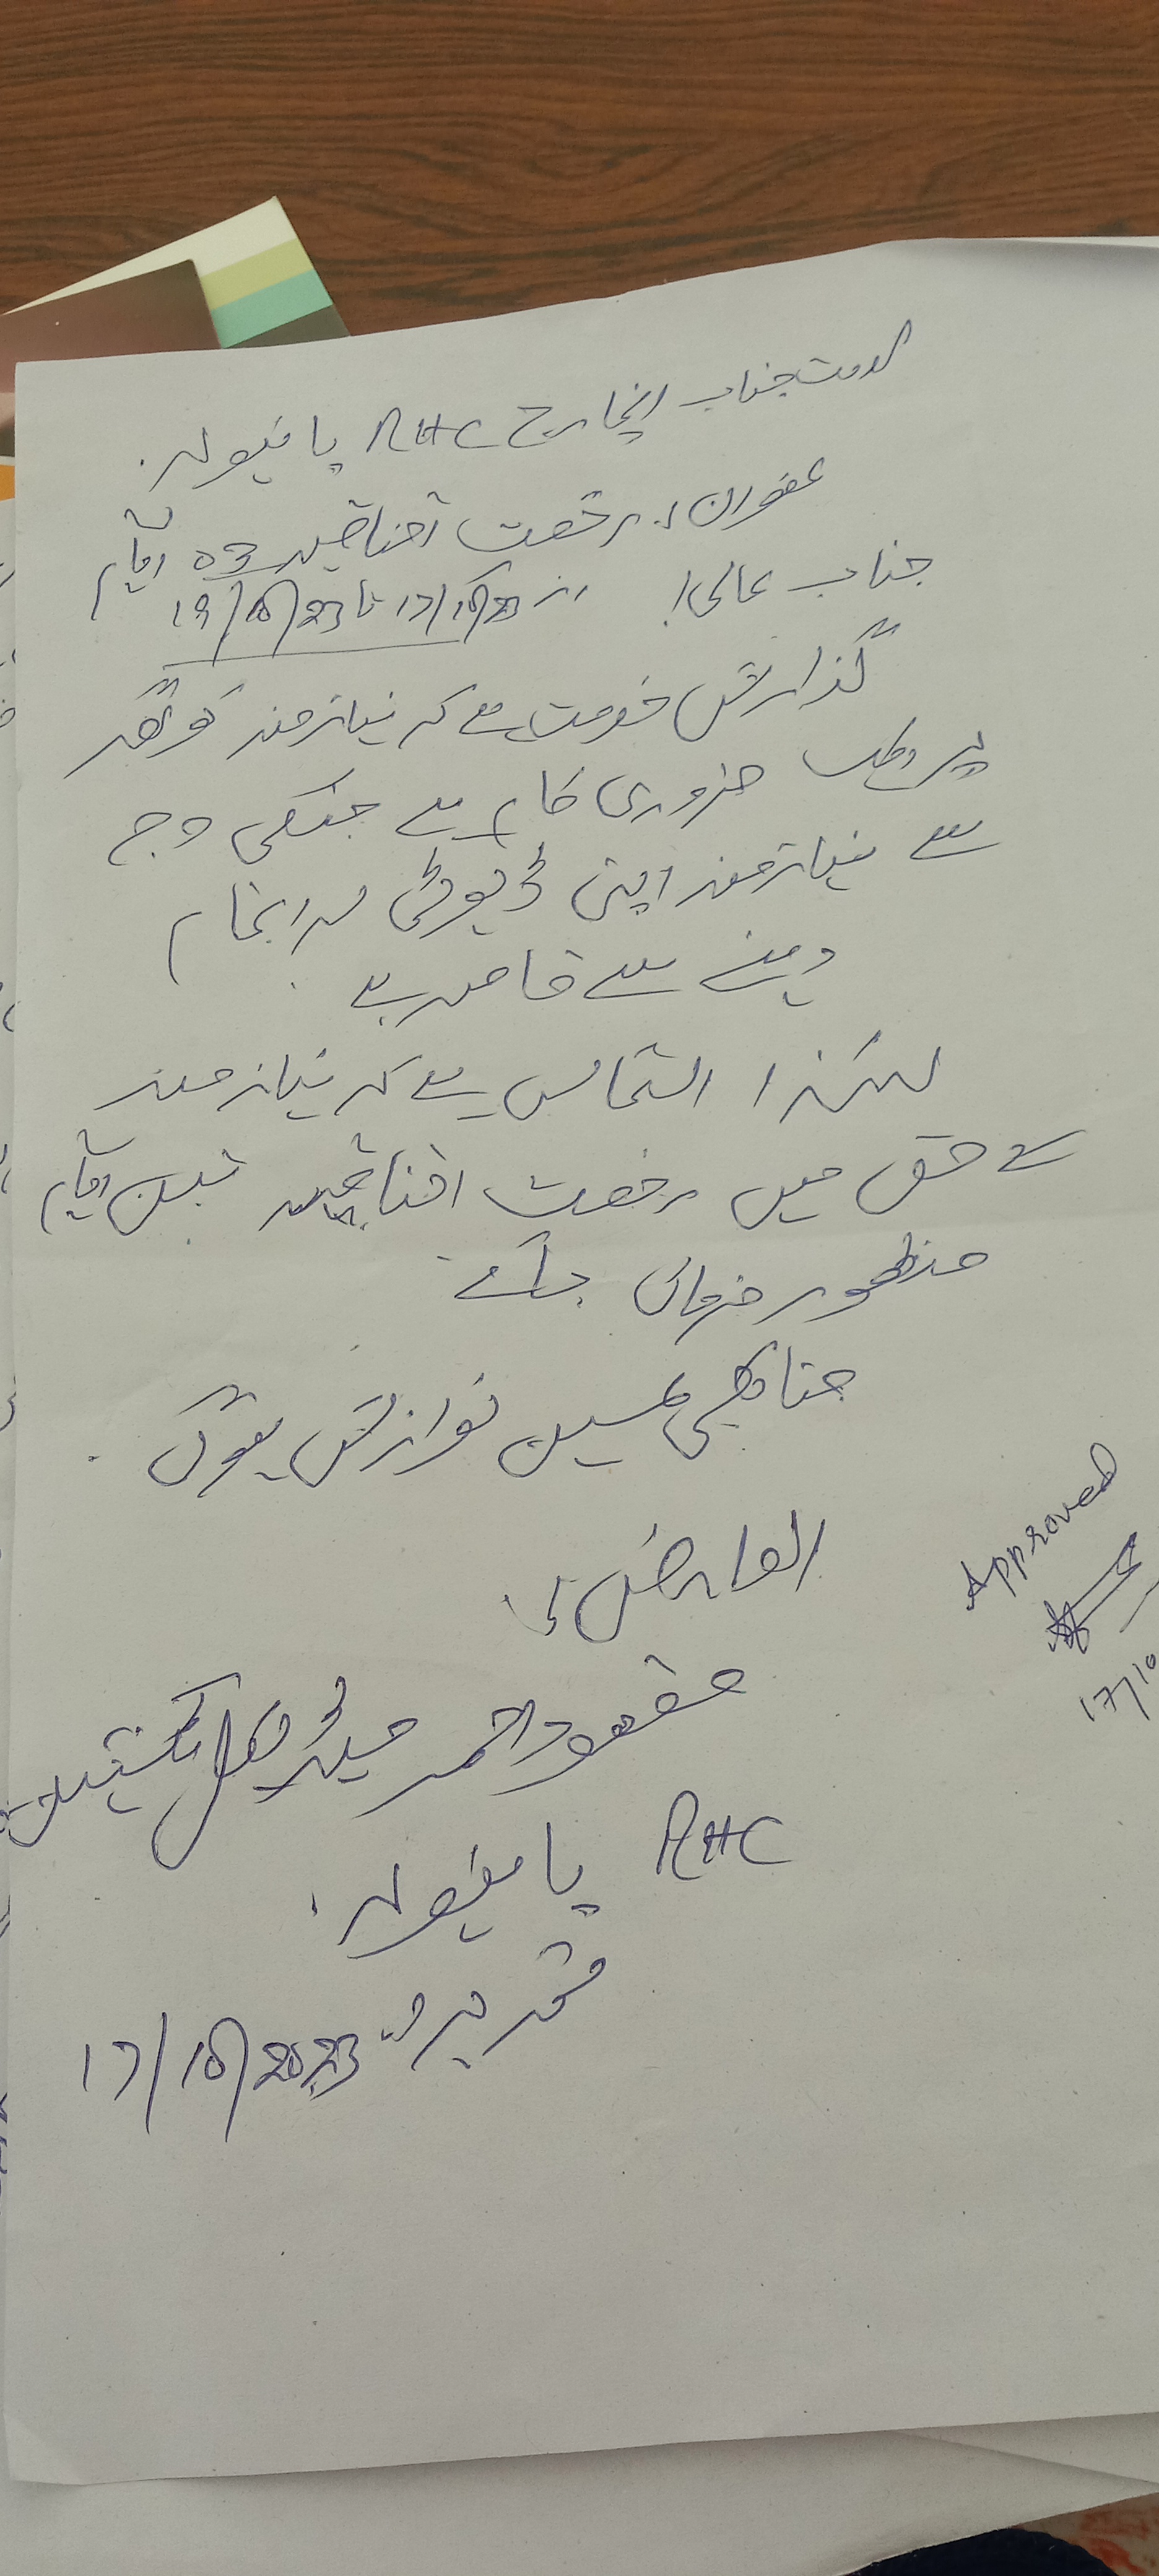 بخدمت جناب انچارج RHC پامنیولہ.
عنوان:۔ رخصت اتفاقیہ 03 ایام
جناب عالی! از 17/10/23 تا 19/10/23
گذارش خدمت ہے کہ نیازمند کو گھر
پر ضروری کام ہے جسکی وجہ
سے نیازمند اپنی ڈیوٹی سرانجام
دینے سے قاصر ہے
لہٰذا التماس ہے کہ نیازمند
کے حق میں رخصت اتفاقیہ تین ایام
منظور فرمائی جائے
جنابکی عین نوازش ہوگی.
العارض:۔
Approved
مقصود احمد میڈیکل ٹیکنیشن
17/10
RHC پامنیولہ.
تحریر 17/10/2023